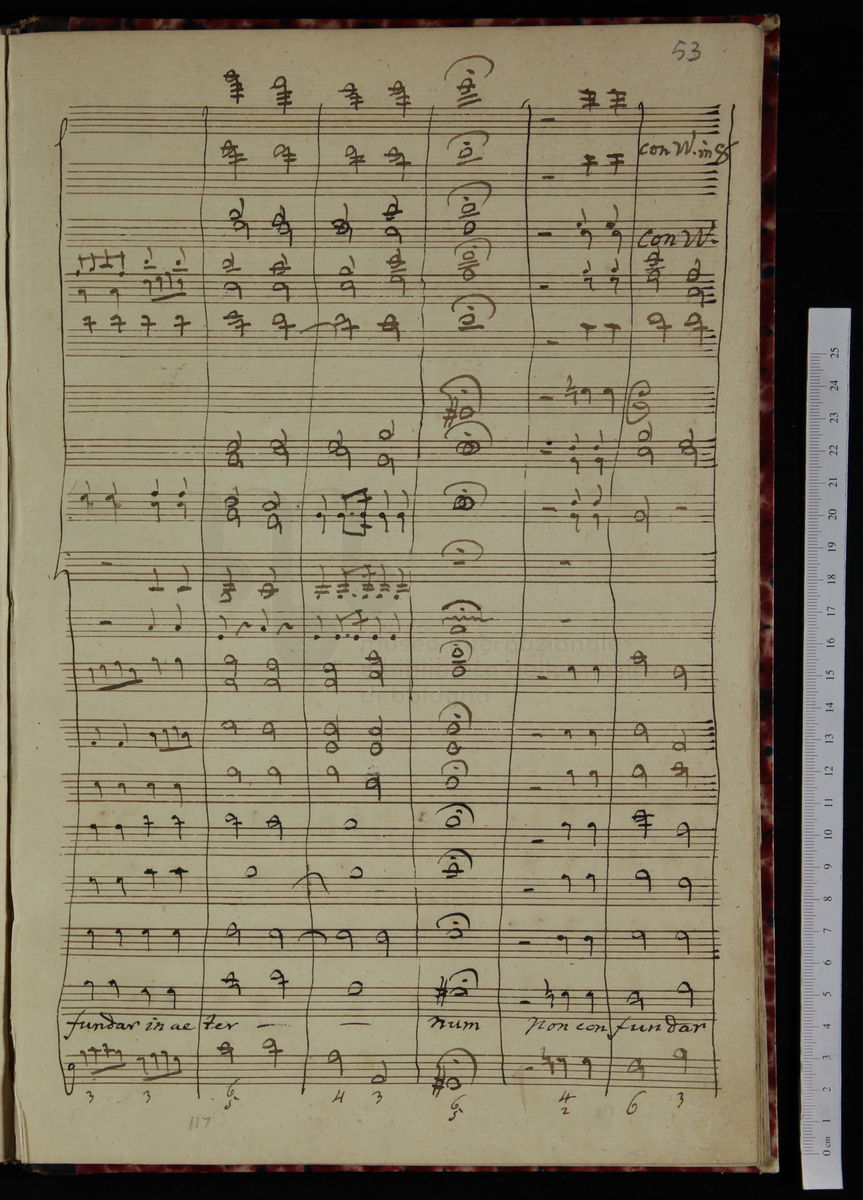 53
con VV. in 8
con VV.
Museo internazionale
di bologna
fundar in ae ter — — num non con fundar
3 3 6 5 4 3 6 5 4 2 6 3
117
25
24
23
22
21
20
19
18
17
16
15
14
13
12
11
10
9
8
7
6
5
4
3
2
1
0 cm